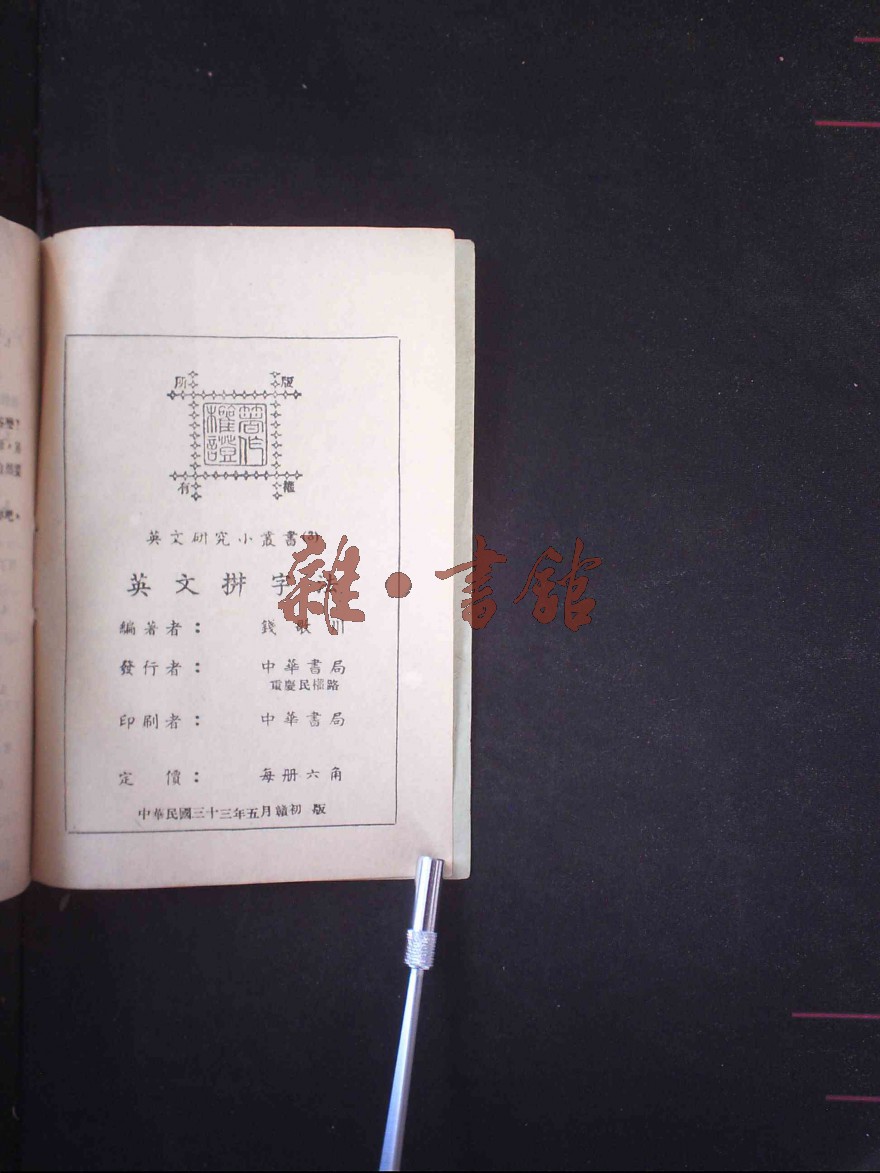 版權所有
著作權證
英文研究小叢書
英文拼字法
編著者： 錢歌川
發行者： 中華書局
重慶民權路
印刷者： 中華書局
定價： 每冊六角
中華民國三十三年五月贛初版
雜·書館